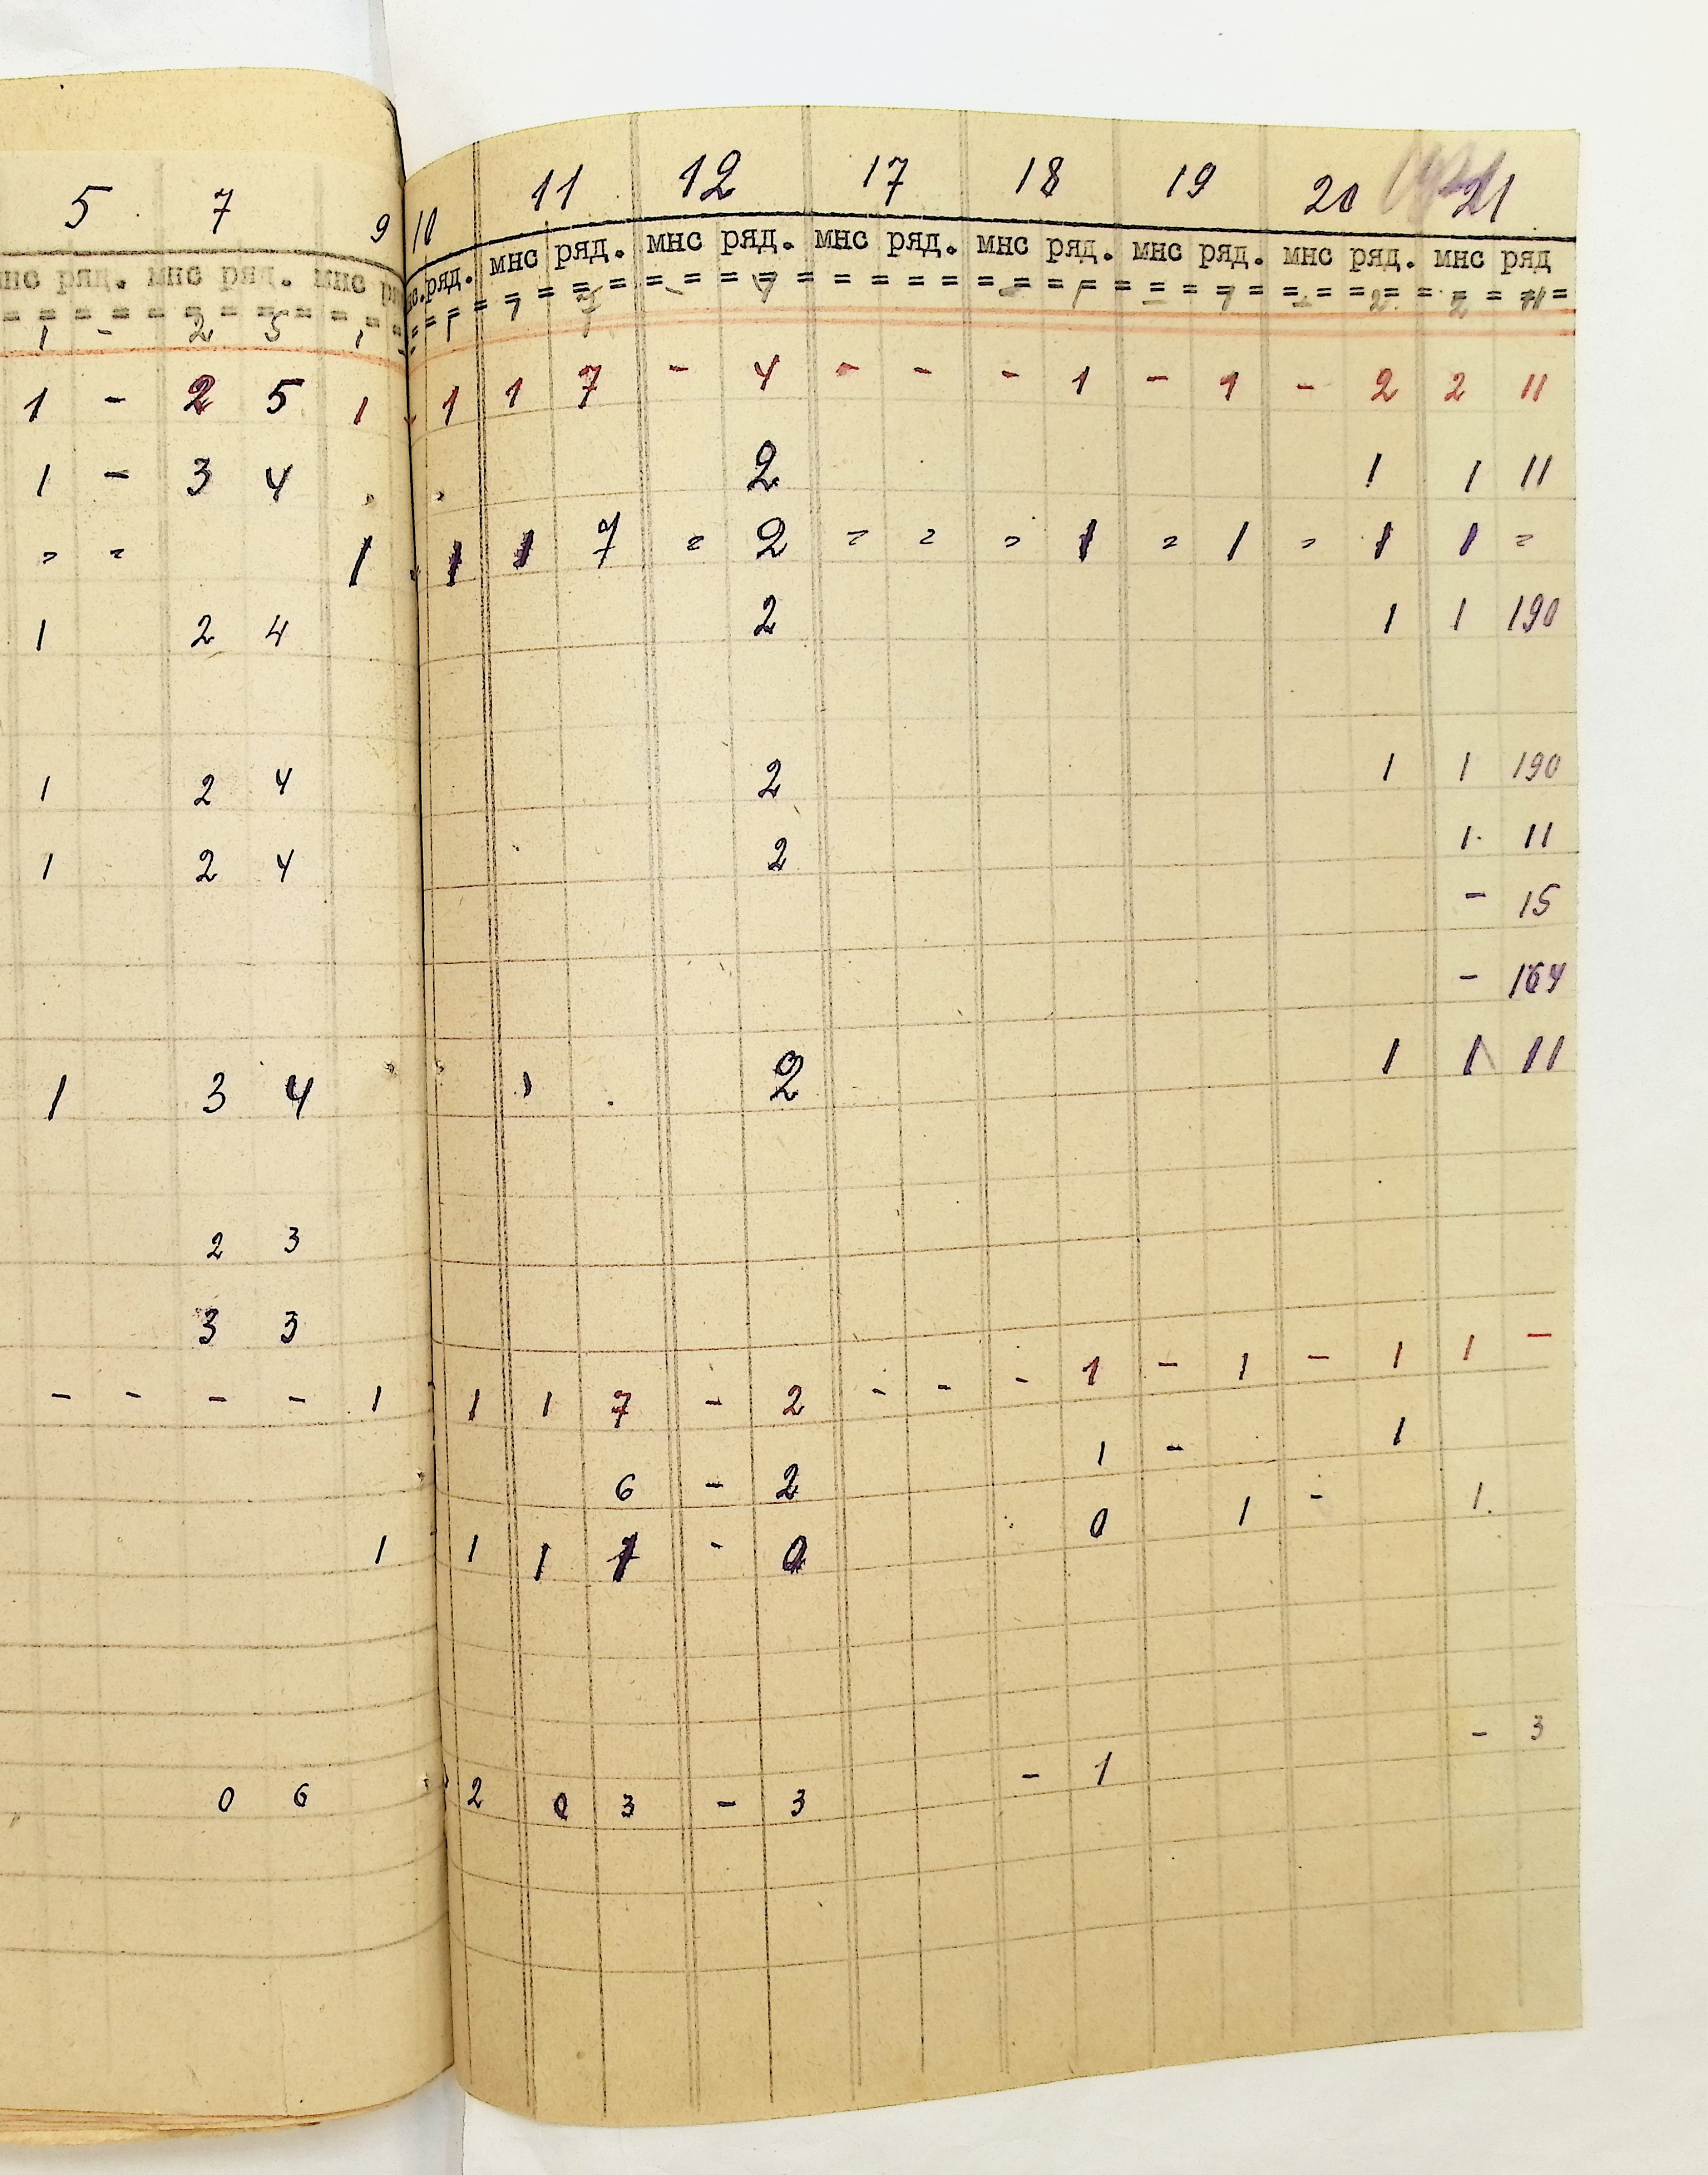 5 7 9 10 11 12 17 18 19 20 21
мнс ряд. мнс ряд. мнс ряд. мнс ряд. мнс ряд. мнс ряд. мнс ряд. мнс ряд. мнс ряд. мнс ряд
= = = = = = = = = = = = = = = = = = = = = =
1 - 2 5 1 1 1 7 - 4 - 1 - 1 - 2 2 11
1 - 2 5 1 - 1 1 7 - 4 - - - 1 - 1 - 2 2 11
1 - 3 4 2 1 1 11
= = 1 1 1 7 = 2 = = = 1 = 1 = 1 1 =
1 2 4 2 1 1 190
1 2 4 2 1 1 190
1 2 4 2 1 11
- 15
- 164
1 3 4 2 1 1 11
2 3
3 3
- - - - 1 1 1 7 - 2 - - - 1 - 1 - 1 1 -
6 - 2 1 - 1
1 1 1 1 - 0 0 1 - 1
0 6 2 0 3 - 3 - 1 - 3